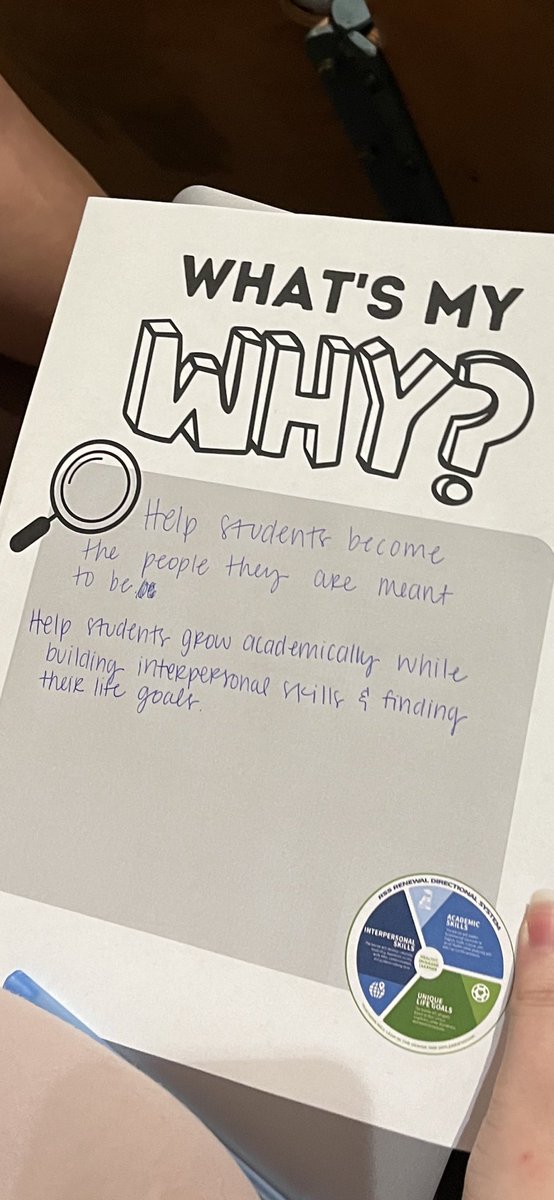 WHAT'S MY
WHY?
Help students become
the people they are meant
to be.
Help students grow academically while
building interpersonal skills & finding
their life goals.
RSS RENEWAL DIRECTIONAL SYSTEM
ACADEMIC
SKILLS
INTERPERSONAL
SKILLS
UNIQUE
LIFE GOALS